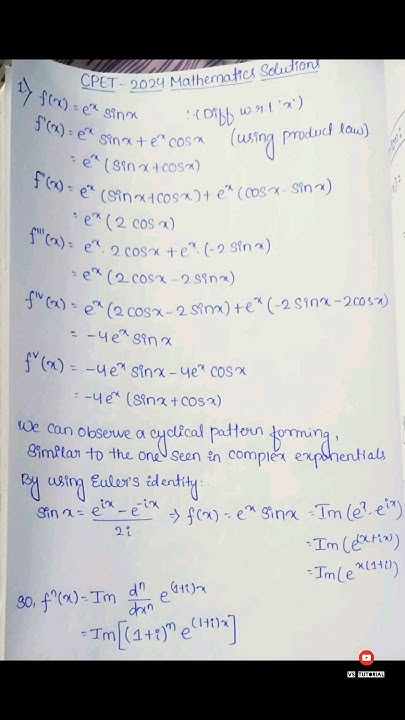 CPET - 2024 Mathematics Solutions
1) f(x) = eˣ sinx :-(Diff w.r.t 'x')
f'(x) = eˣ sinx + eˣ cosx (using product law)
= eˣ (sinx+cosx)
f''(x) = eˣ (sinx+cosx) + eˣ (cosx - sinx)
= eˣ (2 cosx)
f'''(x) = eˣ. 2cosx + eˣ. (-2 sinx)
= eˣ (2cosx - 2sinx)
fⁱᵛ(x) = eˣ (2cosx - 2sinx) + eˣ (-2sinx - 2cosx)
= -4eˣ sinx
fᵛ(x) = -4eˣ sinx - 4eˣ cosx
= -4eˣ (sinx + cosx)
We can observe a cyclical pattern forming,
similar to the one seen in complex exponentials
By using Euler's identity:
sinx = (e^{ix} - e^{-ix})/2i ⇒ f(x) = eˣ sinx = Im(eˣ. e^{ix})
= Im(e^{(x+ix)})
= Im(e^{x(1+i)})
so, fⁿ(x) = Im dⁿ/dxⁿ e^{(1+i)x}
= Im[(1+i)ⁿ e^{(1+i)x}]
VS TUTORIAL